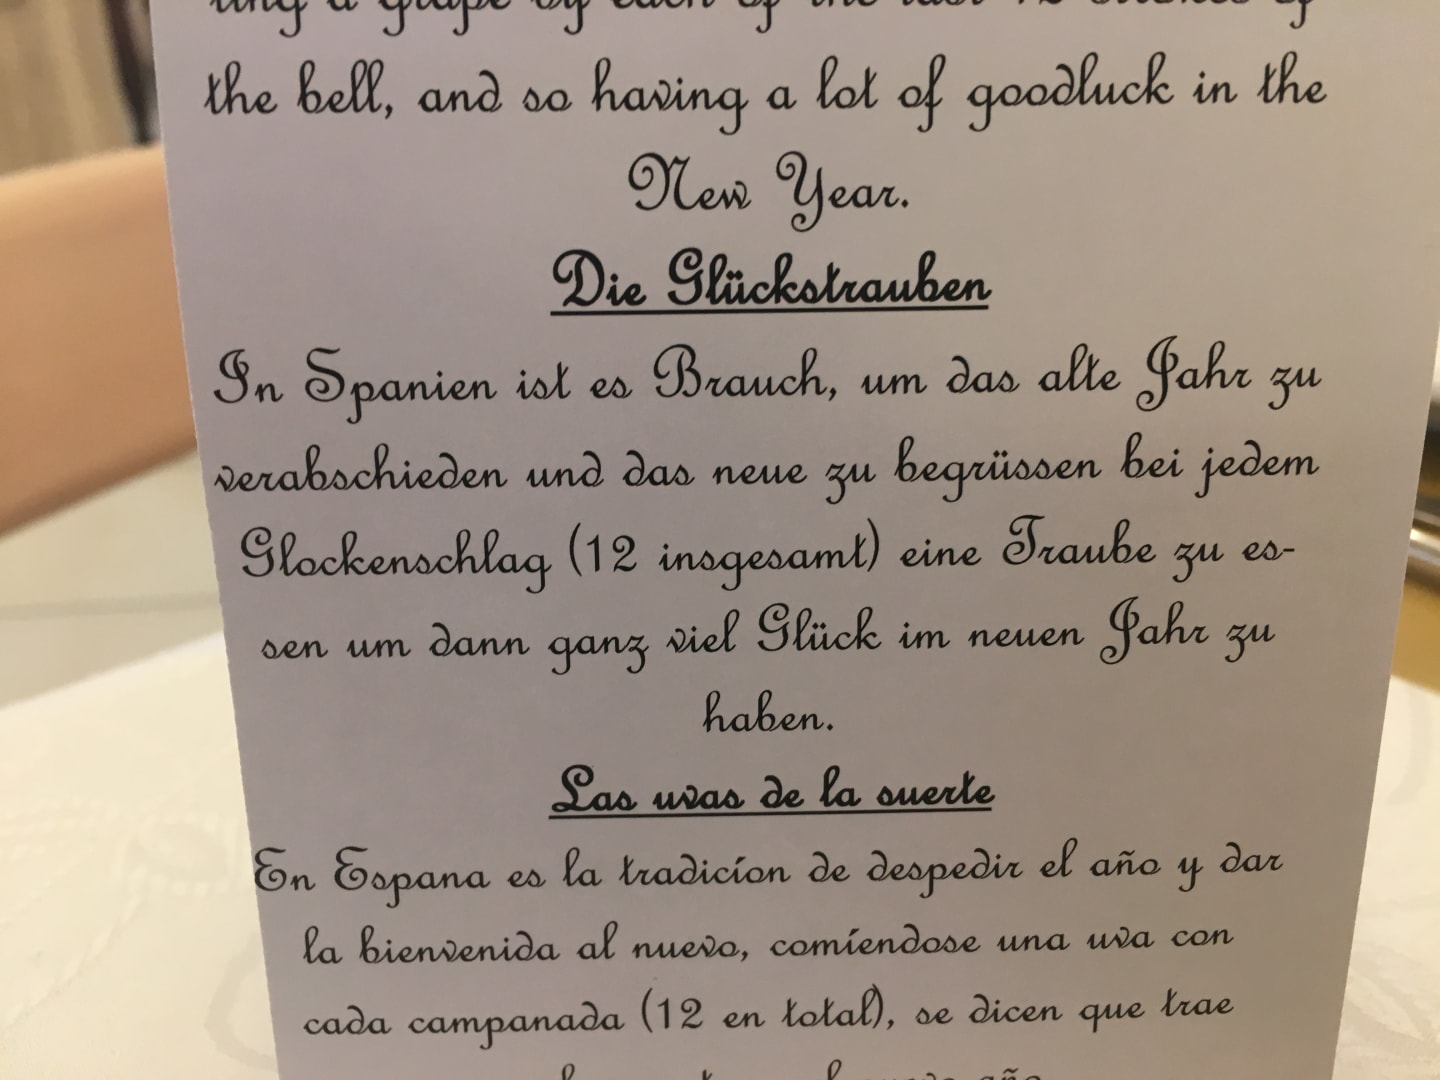 the bell, and so having a lot of goodluck in the
New Year.
Die Glückstrauben
In Spanien ist es Brauch, um das alte Jahr zu
verabschieden und das neue zu begrüssen bei jedem
Glockenschlag (12 insgesamt) eine Traube zu es-
sen um dann ganz viel Glück im neuen Jahr zu
haben.
Las uvas de la suerte
En Espana es la tradicíon de despedir el año y dar
la bienvenida al nuevo, comíendose una uva con
cada campanada (12 en total), se dicen que trae